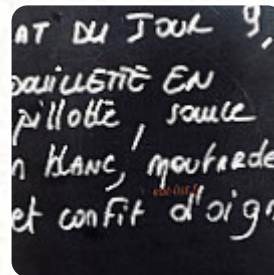 AT DU JOUR 9,
OUILLETTE EN
pillotte, sauce
n BLANC, moutarde
et confit d'oign